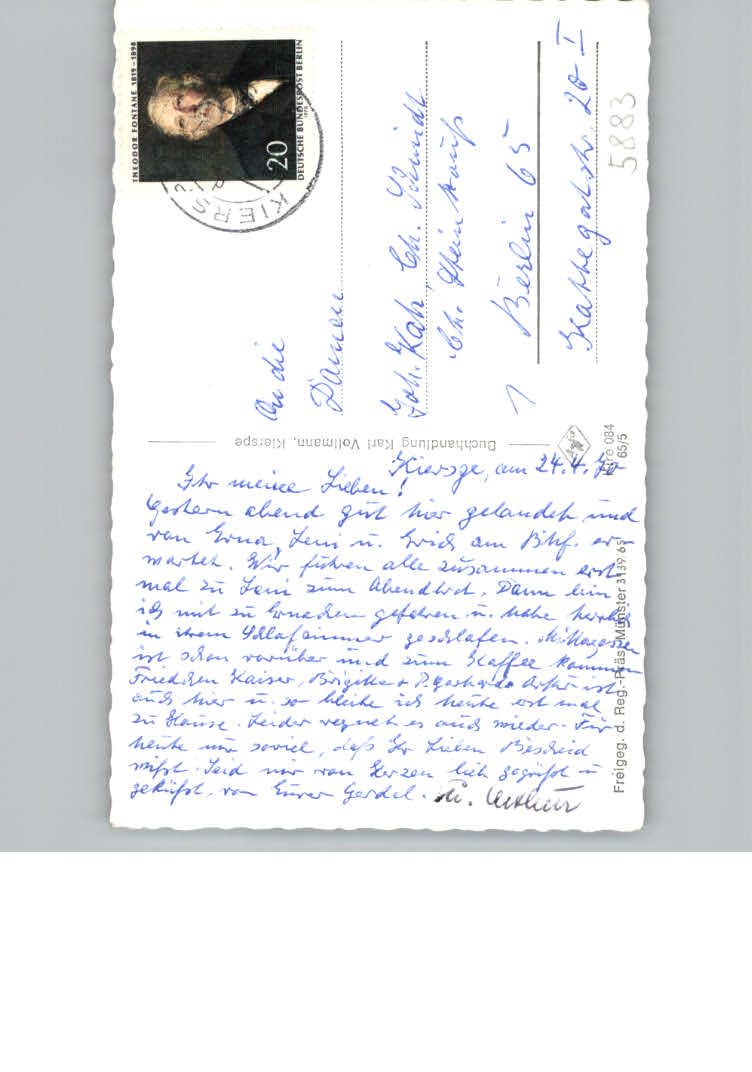 THEODOR FONTANE 1819–1898
20
DEUTSCHE BUNDESPOST BERLIN
1970
KIERS
An die
Damen
Joh. Kath. Ch. Schmidt
Chr. Steinhauß
1 Berlin 65
Kattegatstr. 20 I
5883
Buchhandlung Karl Vollmann, Kierspe
Agfa
084
65/5
Freigeg. d. Reg.-Präs. Münster 3139/65
Kierspe, am 24.4.70
Ihr meine Lieben!
Gestern abend gut hier gelandet und
von Erna, Leni u. Erich am Bhf. er-
wartet. Wir fuhren alle zusammen erst
mal zu Leni zum Abendbrot. Dann bin
ich mit zu Ernachen gefahren u. habe herrlich
in ihrem Schlafzimmer geschlafen. Mittagessen
ist schon vorüber und zum Kaffee kommen
Friedchen Kaiser, Brigitte + P. Gerhards Arthur ist
auch hier u. so bleibe ich heute erst mal
zu Hause. Leider regnet es auch wieder. Für
heute nur soviel, daß Ihr Lieben Bescheid
wißt. Seid nur von Herzen lieb gegrüßt u
geküßt, von Eurer Gerdel. u. Arthur